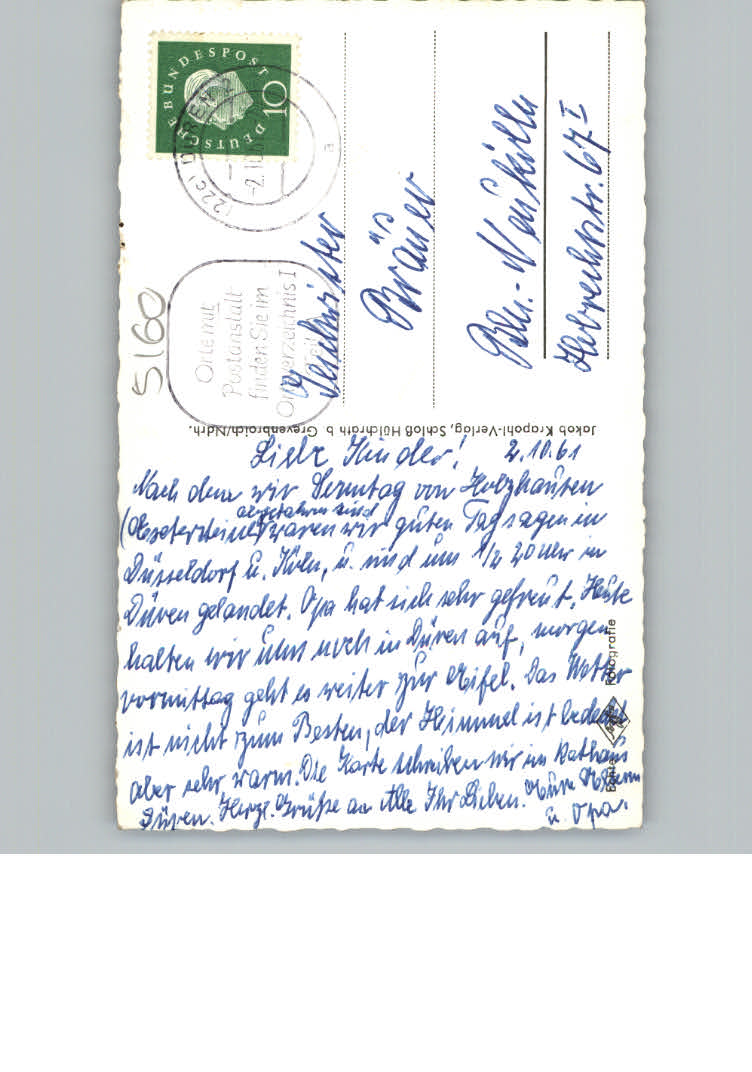 DEUTSCHE BUNDESPOST
10
(22c) DÜREN 2
a
-2.10.61
Orte mit
Postanstalt
finden Sie im
Ortsverzeichnis I
5160
Geschwister
Bräuer
Bln.-Neukölln
Hobrechtstr. 67 I
Jakob Krapohl-Verlag, Schloß Hülchrath b. Grevenbroich/Ndrh.
Liebe Kinder! 2.10.61
Nach dem wir Sonntag von Holzhausen
abgefahren sind
waren wir guten Tag sagen in
Düsseldorf u. Köln, u. sind um 1/2 20 Uhr in
Düren gelandet. Opa hat sich sehr gefreut. Heute
halten wir uns noch in Düren auf, morgen
vormittag geht es weiter zur Eifel. Das Wetter
ist nicht zum Besten, der Himmel ist bedeckt
aber sehr warm. Die Karte schreiben wir im Rathaus
Düren. Herzl. Grüße an Alle Ihr Lieben. Eure Eltern
u. Opa
Echte Fotografie